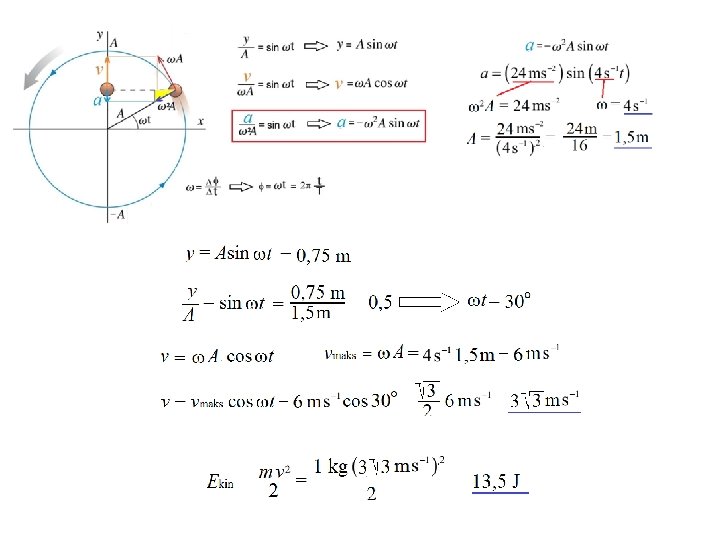 y
A
v
ωA
a
A
ω²A
ωt
x
-A
y/A = sin ωt ⇒ y = A sin ωt
v/ωA = sin ωt ⇒ v = ωA cos ωt
a/ω²A = sin ωt ⇒ a = -ω²A sin ωt
ω = Δϕ/Δt ⇒ ϕ = ωt = 2π t/T
a = -ω²A sin ωt
a = (24 ms⁻²) sin (4 s⁻¹t)
ω²A = 24 ms⁻² ω = 4 s⁻¹
A = 24 ms⁻²/(4 s⁻¹)² = 24 m/16 = 1,5 m
y = A sin ωt = 0,75 m
y/A = sin ωt = 0,75 m/1,5 m 0,5 ⇒ ωt = 30°
v = ω A cos ωt vmaks = ω A = 4 s⁻¹ 1,5 m = 6 ms⁻¹
v = vmaks cos ωt = 6 ms⁻¹ cos 30° √3/2 6 ms⁻¹ 3√3 ms⁻¹
Ekin mv²/2 = 1 kg (3√3 ms⁻¹)²/2 13,5 J